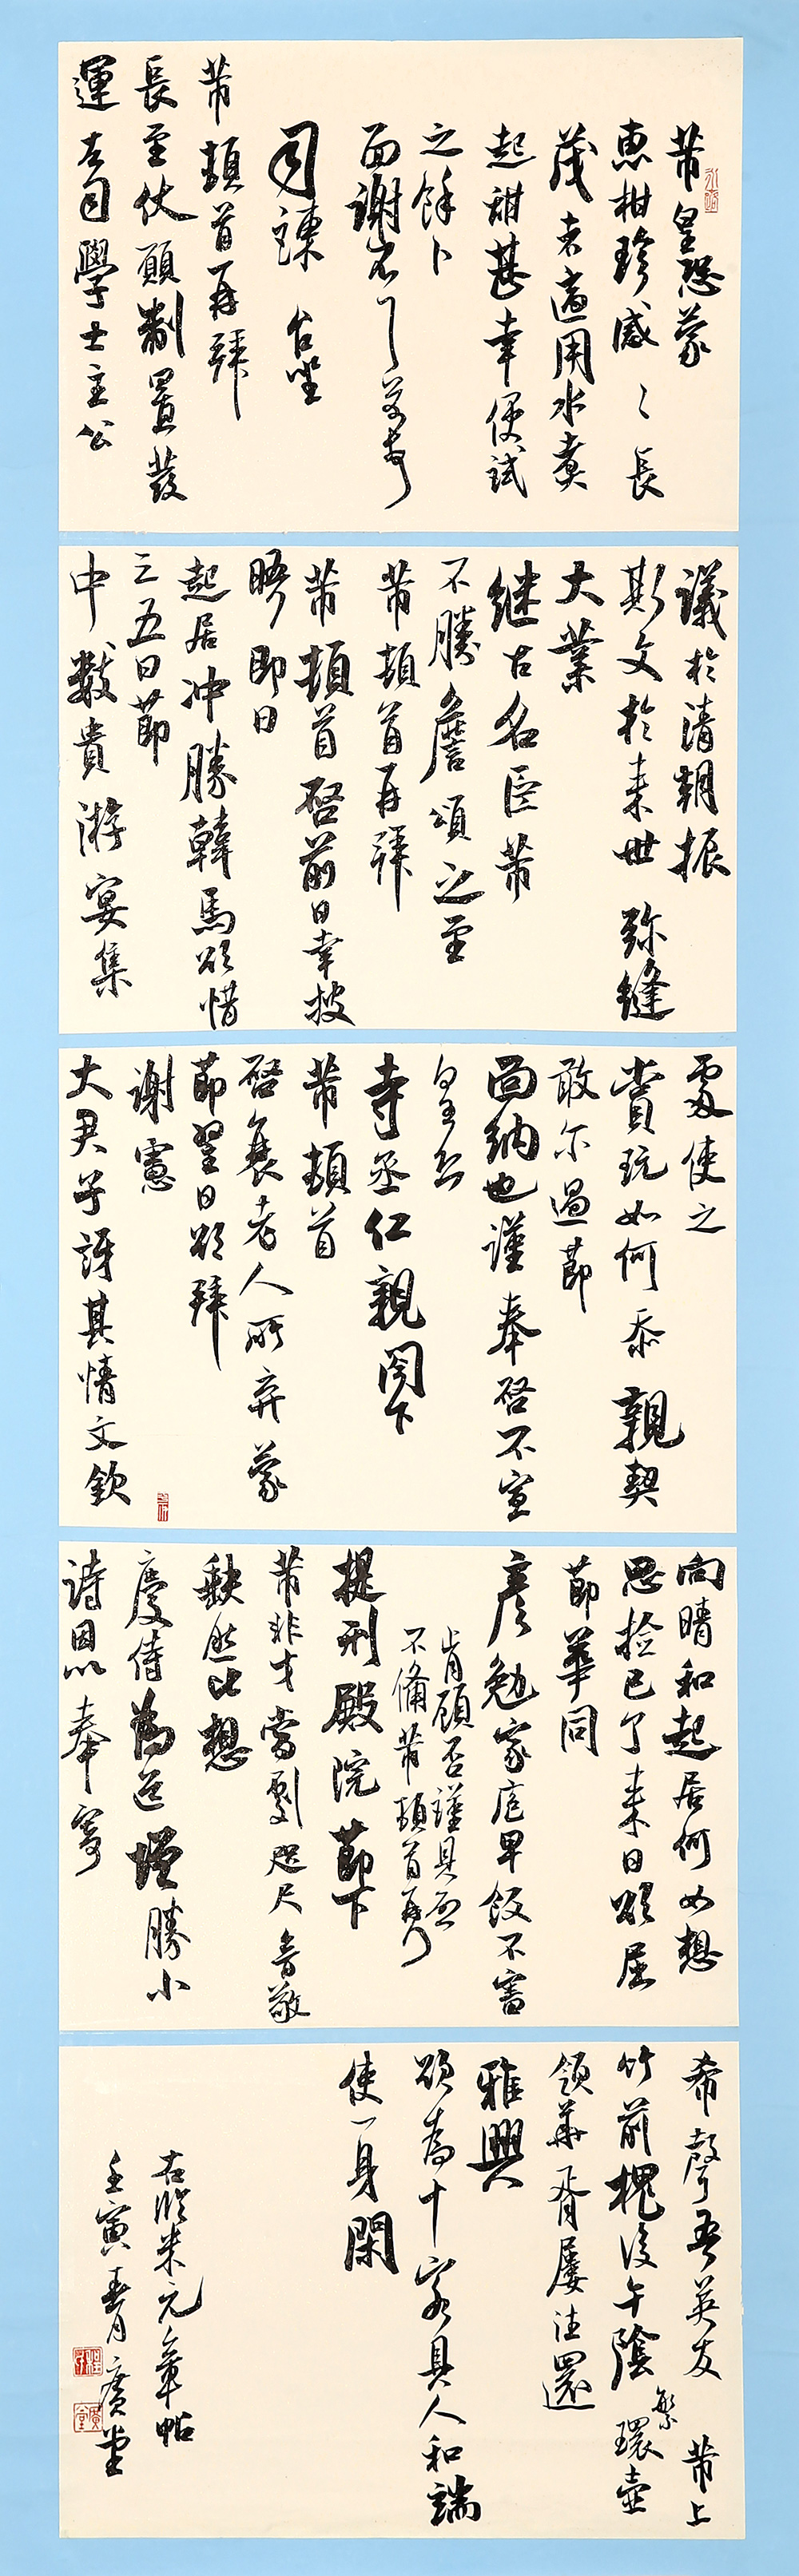 芾皇恐蒙
惠柑珍感〻長
茂者適用水煮
起甜甚幸便試
之餘卜
面謝不
司諫 台坐
芾頓首再拜
長至伏願制置發
運左司學士主公
議於清朝振
斯文於來世 彌縫
大業
繼古名臣芾
不勝詹頌之至
芾頓首再拜
芾頓首啓前日幸披
晤即日
起居冲勝韓馬欲惜
三五日節
中數貴游宴集
處使之
賞玩如何忝親契
敢尔過節
面納也謹奉啓不宣
皇恐
寺丞仁親閣下
芾頓首
啓衰老人所弃蒙
節翌日欲拜
謝憲
大尹子訝其情文欽
向晴和起居何如想
思撿已了來日欲屈
節華同
彥勉家庖早飯不審
肯顧否謹具啓
不備芾頓首再
提刑殿院節下
芾非才當劇咫尺音敬
缺然比想
慶侍爲道增勝小
詩因以奉寄
希聲吾英友 芾上
竹前槐後午陰繁環壺
領華胥屢往還
雅興
欲爲十客具人和端
使一身閑
右臨米元章帖
壬寅春月廣堂